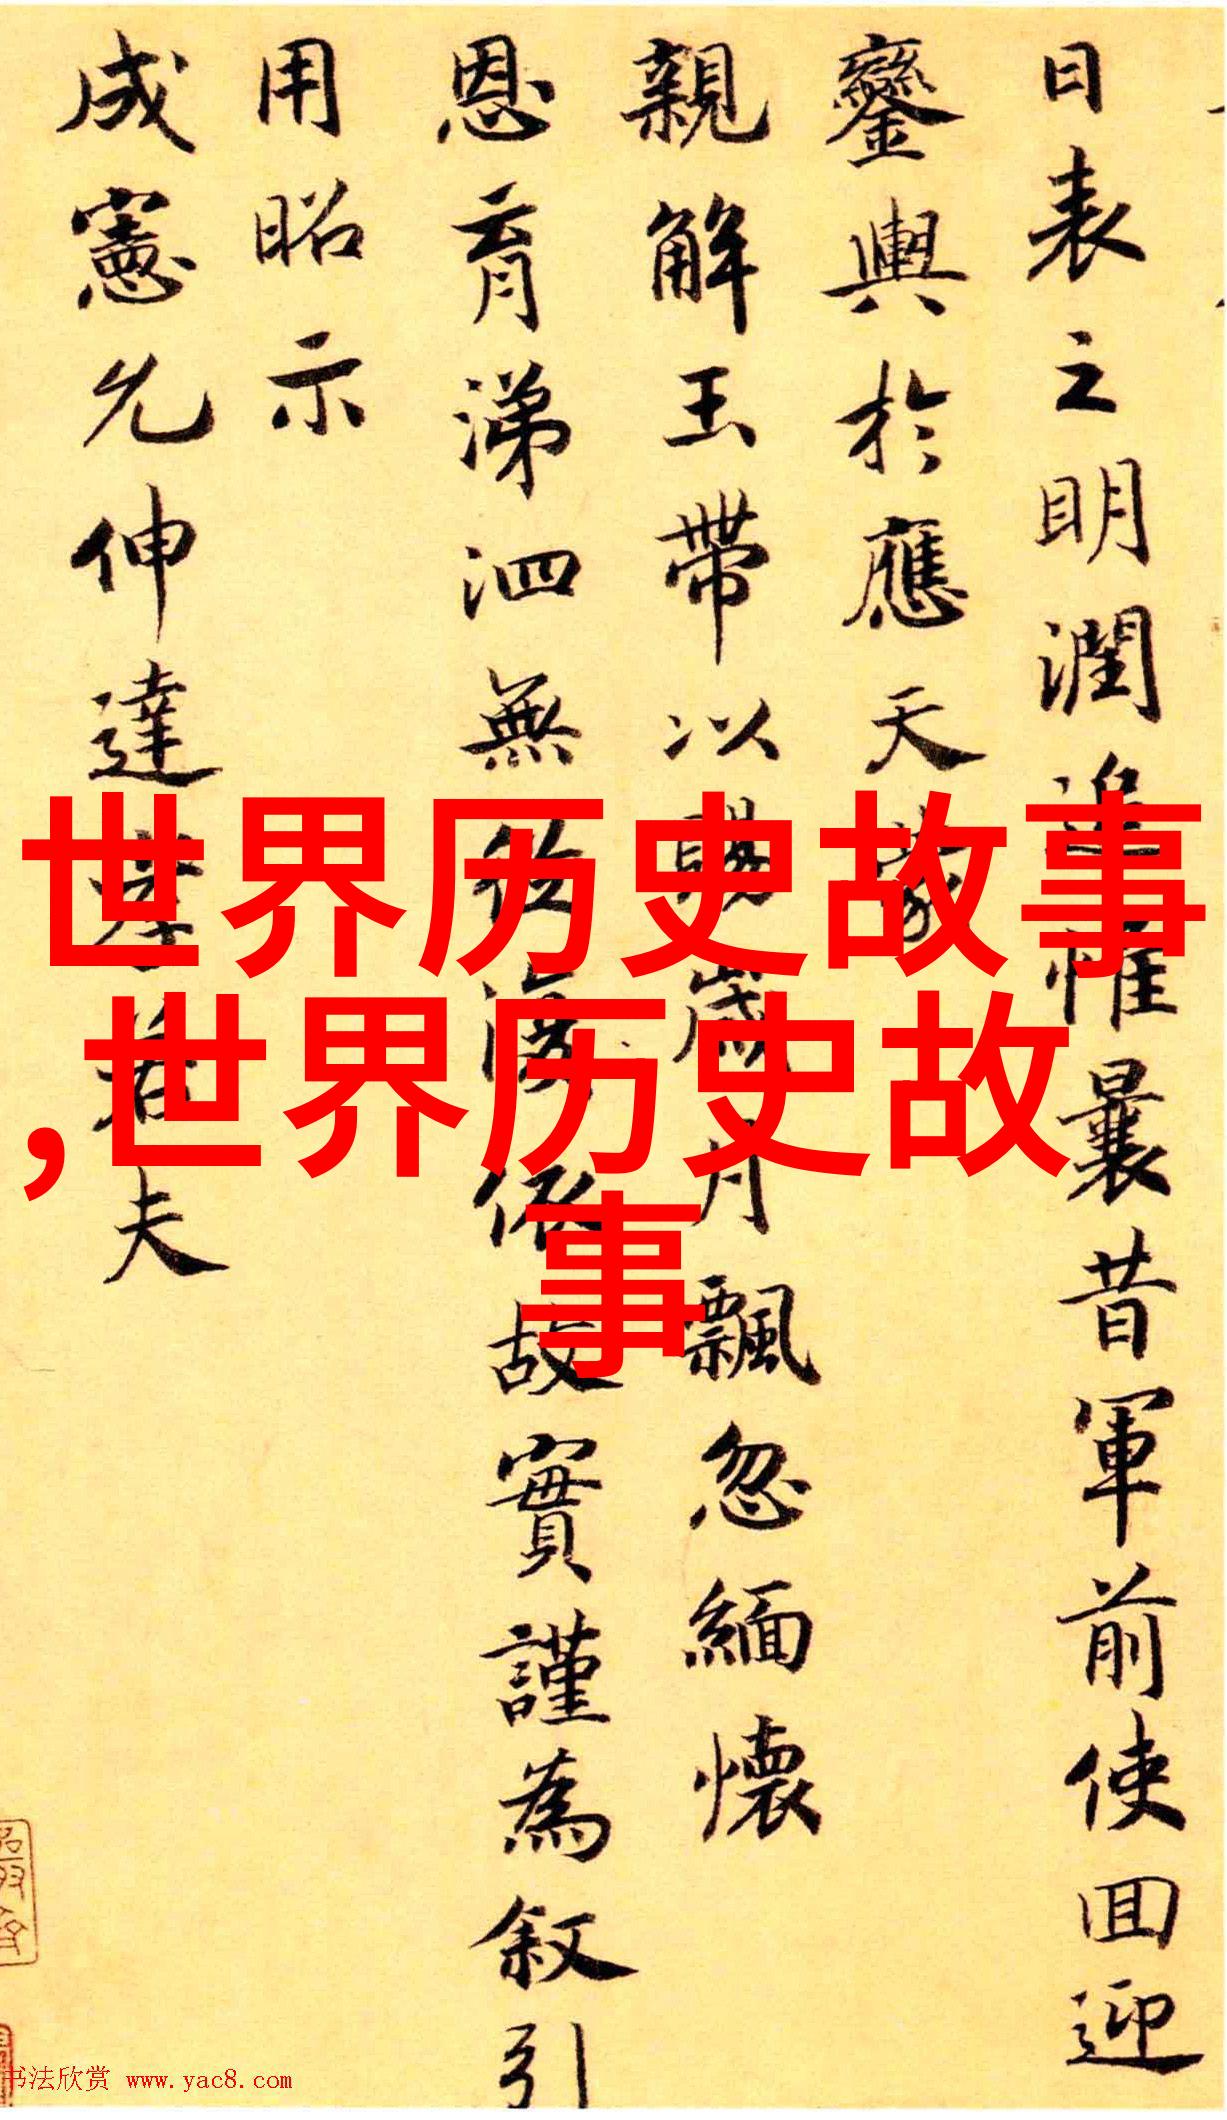 日表之明潤進惟曩昔軍前使回迎
鑾輿於應天蒙
親解玉帶以賜歲月飄忽緬懷
恩育涕泗無從海依故實謹為叙引
用昭示
成憲允伸達孝若夫
世界历史故事
,世界历史故
事
书法欣赏 www.yac8.com